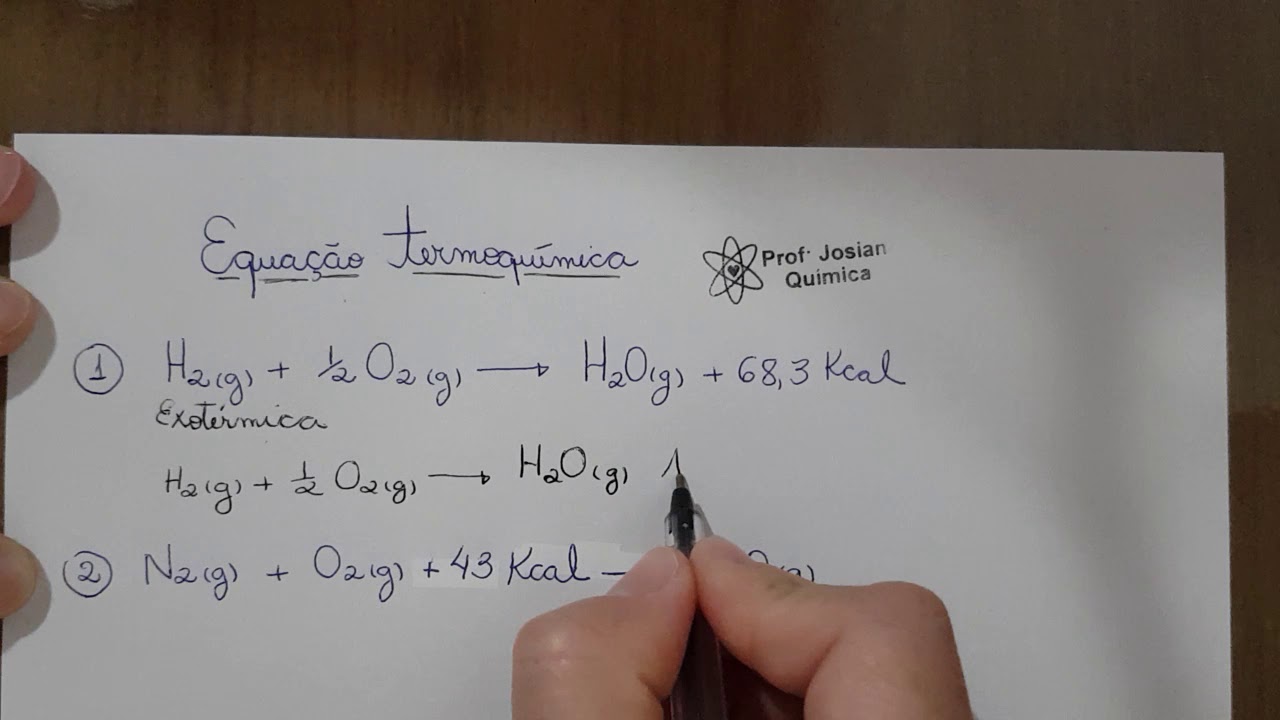 Equação termoquímica
Prof. Josian
Química
1 H2(g) + 1/2 O2(g) → H2O(g) + 68,3 Kcal
Exotérmica
H2(g) + 1/2 O2(g) → H2O(g)
2 N2(g) + O2(g) + 43 Kcal